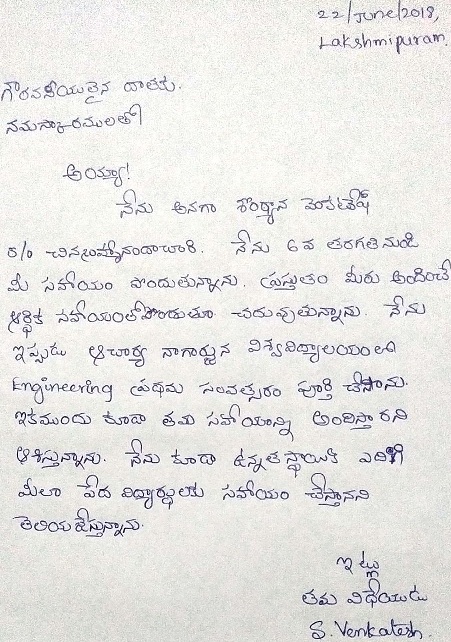 22/June/2018,
Lakshmipuram.
గౌరవనీయులైన దాతకు.
నమస్కారములతో
అయ్యా!
నేను అనగా శొంఠ్యాన వెంకటేష్
S/o చినబ్రహ్మానందాచారి. నేను 6వ తరగతి నుండి
మీ సహాయం పొందుతున్నాను. ప్రస్తుతం మీరు అందించే
ఆర్థిక సహాయంతో పొందుతూ చదువుతున్నాను. నేను
ఇప్పుడు ఆచార్య నాగార్జున విశ్వవిద్యాలయంలో
Engineering ప్రథమ సంవత్సరం పూర్తి చేసాను.
ఇకముందు కూడా తమ సహాయాన్ని అందిస్తారని
ఆశిస్తున్నాను. నేను కూడా ఉన్నత స్థాయికి ఎదిగి
మీలా పేద విద్యార్థులకు సహాయం చేస్తానని
తెలియజేస్తున్నాను.
ఇట్లు
తమ విధేయుడు
S. Venkatesh